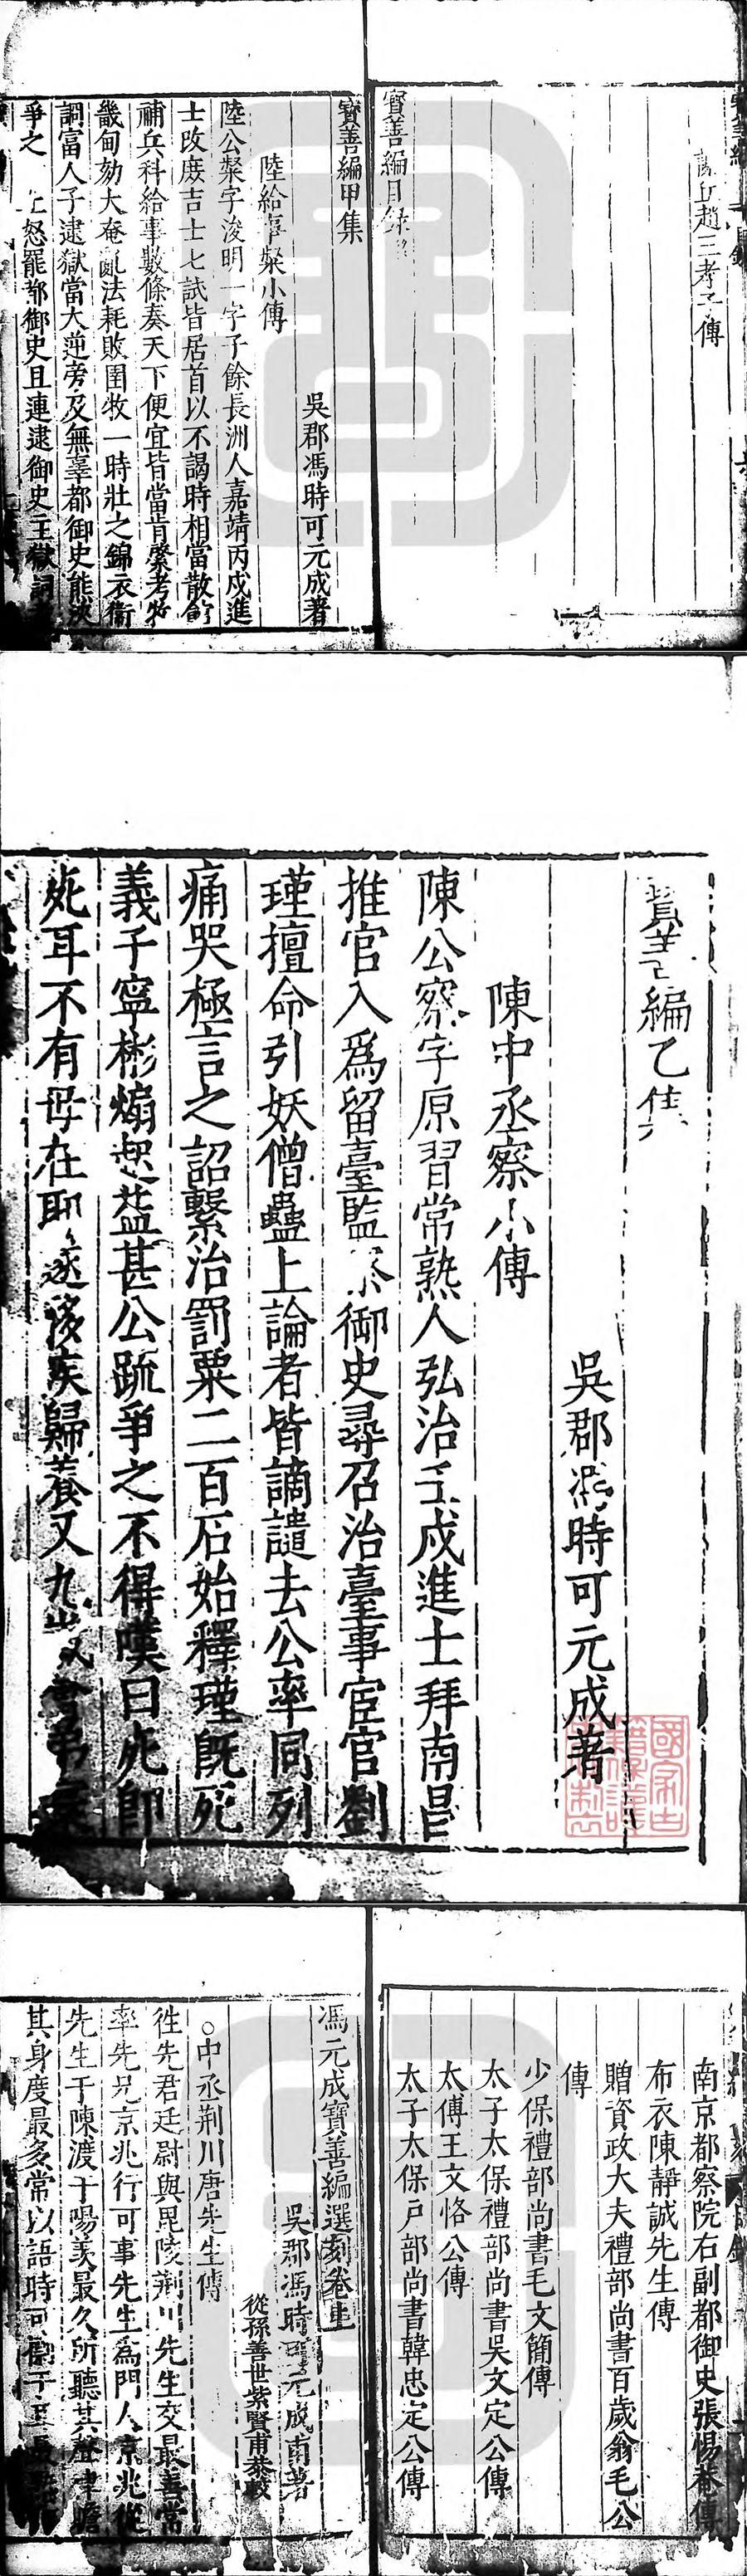 趙三孝子傳
寶善編目錄
寶善編甲集
吳郡馮時可元成著
陸給事粲小傳
陸公粲字浚明一字子餘長洲人嘉靖丙戌進
士改庶吉士七試皆居首以不謁時相當散館
補兵科給事數條奏天下便宜皆當肯綮考牧
畿甸劾大奄亂法耗敗圉牧一時壯之錦衣衛
詷富人子逮獄當大逆旁及無辜都御史熊浹
爭之 上怒罷都御史且連逮御史主獄詞
寶善編乙集
吳郡馮時可元成著
陳中丞察小傳
陳公察字原習常熟人弘治壬戌進士拜南昌
推官入爲留臺監察御史尋召治臺事宦官劉
瑾擅命引妖僧蠱上論者皆謫譴去公率同列
痛哭極言之詔繫治罰粟二百石始釋瑾既死
義子寧彬煽惡益甚公疏爭之不得嘆曰死卽
死耳不有母在耶遂移疾歸養又九
南京都察院右副都御史張惕菴傳
布衣陳靜誠先生傳
贈資政大夫禮部尚書百歲翁毛公
傳
少保禮部尚書毛文簡傳
太子太保禮部尚書吳文定公傳
太傅王文恪公傳
太子太保戶部尚書韓忠定公傳
馮元成寶善編選刻卷
吳郡馮時可元成甫著
從孫善世紫賢甫叅較
○中丞荆川唐先生傳
徃先君廷尉與毘陵荆川先生交最善常
率先兄京兆行可事先生爲門人京兆從
先生于陳渡于陽羨最久所聽其聲律瞻
其身度最多常以語時可